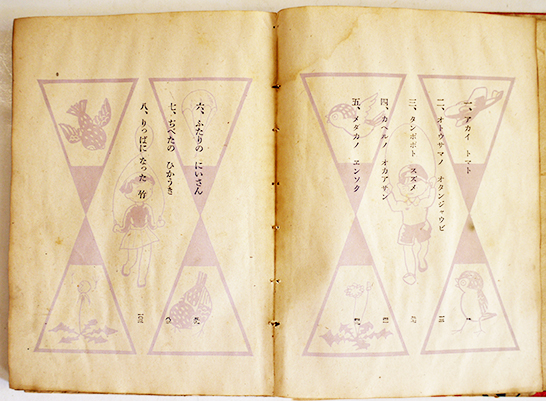 一、アカイ トマト
二、オトウサマノ オタンジャウビ
三、タンポポト スズメ
四、カヘルノ オカアサン
五、メダカノ ヱンソク
六、ふたりの にいさん
七、ぢべたの ひかうき
八、りっぱに なった 竹